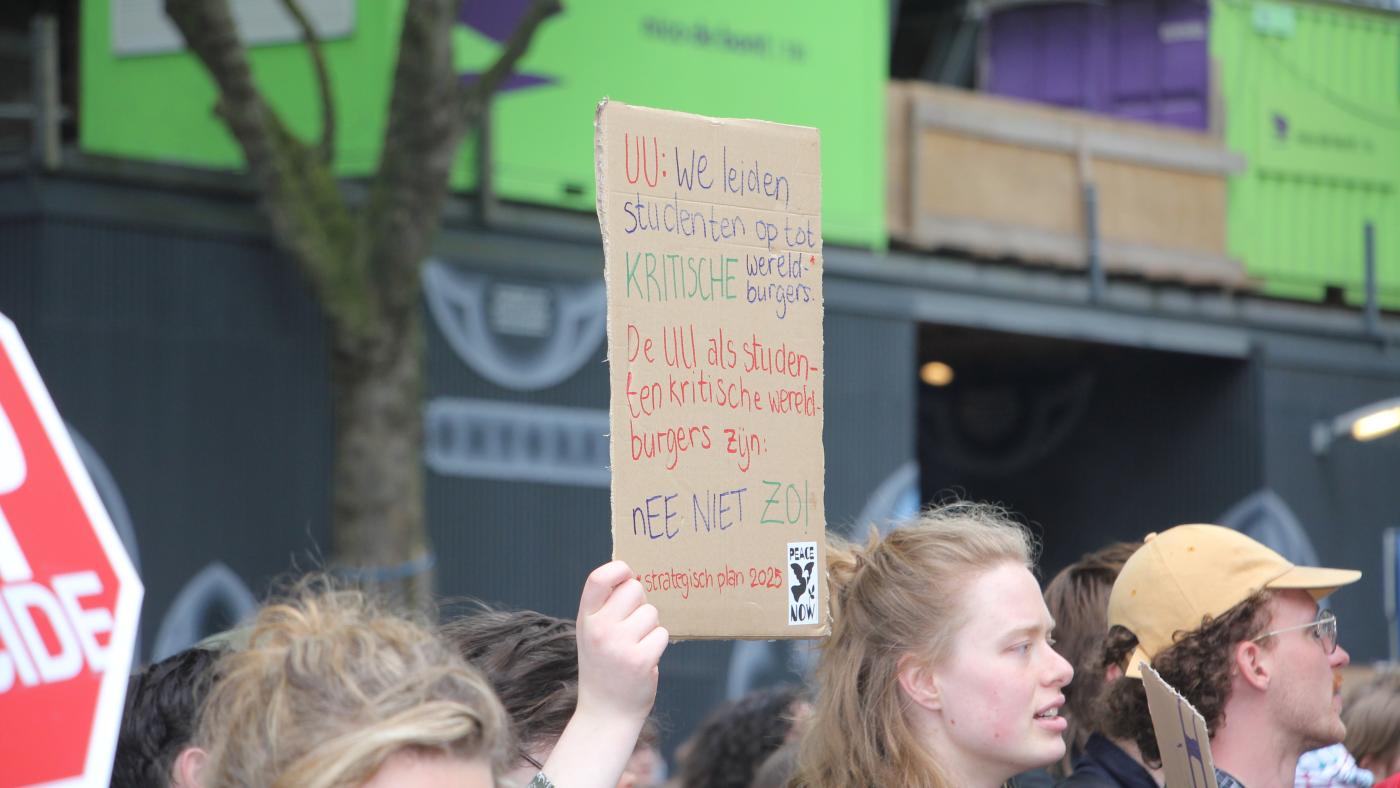 UU: We leiden
studenten op tot
KRITISCHE wereld-*
burgers.
De UU als studen-
ten kritische wereld-
burgers zijn:
nEE NIET ZO!
*strategisch plan 2025
PEACE
NOW
CIDE